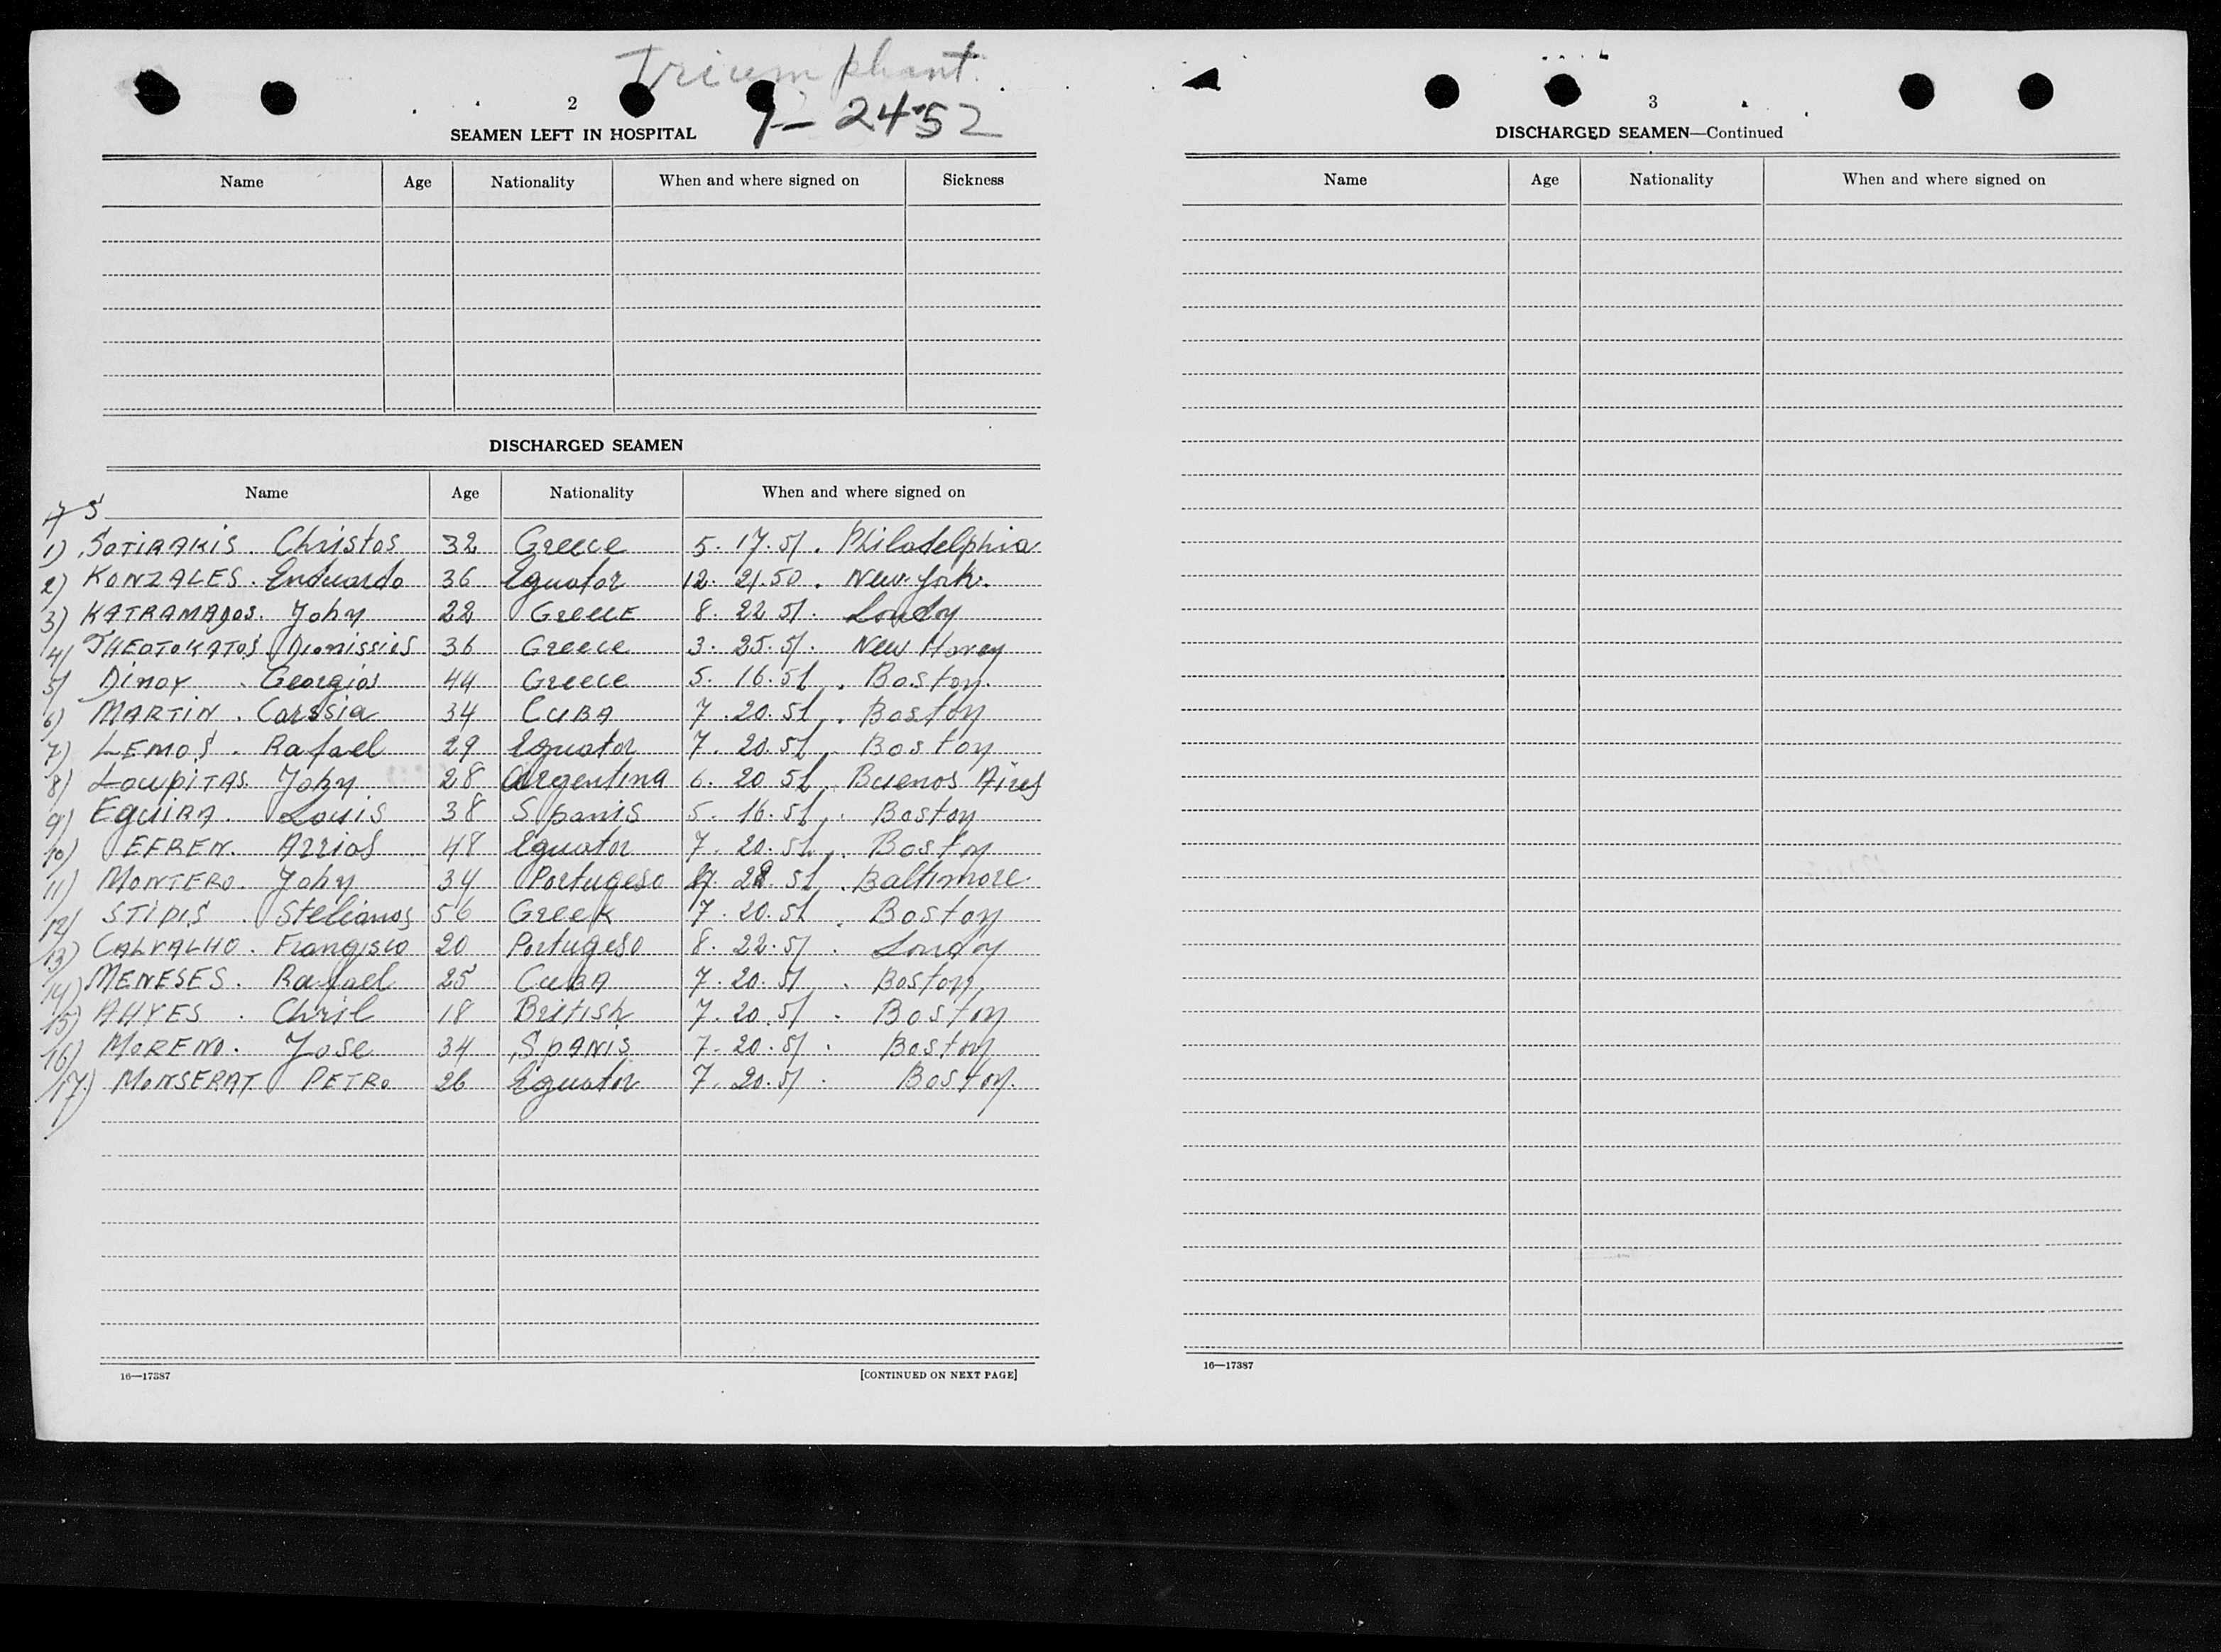 Triumphant.
2
9-24-52
SEAMEN LEFT IN HOSPITAL
Name Age Nationality When and where signed on Sickness
DISCHARGED SEAMEN
Name Age Nationality When and where signed on
1) SOTIRAKIS. Christos 32 Greece 5. 17. 51. Philadelphia
2) KONZALES. Enduardo 36 Equator 12. 21. 50. New York.
3) KATRAMADOS. John 22 Greece 8. 22 51. London
4) THEOTOKATOS Dionissios 36 Greece 3. 25. 51. New Haven
5) Dinoy. Georgios 44 Greece 5. 16. 51. Boston.
6) MARTIN. Carssia 34 CUBA 7. 20. 51. Boston
7) LEMOS. Rafael 29 Equator 7. 20. 51. Boston
8) LoupiTAS. John 28 Argentina 6. 20 51. Buenos Aires
9) EguiRA. Louis 38 Spanis 5. 16. 51. Boston
10) EFREN. Arrios 48 Equator 7. 20. 51. Boston
11) MONTERO. John 34 Portugeso 28. 51. Baltimore
12) STIDIS. Stelianos 56 Greek 7. 20. 51. Boston
13) CALVALHO. Frangisco 20 Portugeso 8. 22. 51. London
14) MENESES. Rafael 25 CUBA 7. 20. 51. Boston
15) AHYES. Chril 18 British 7. 20. 51. Boston
16) MORENO. Jose 34 SPANIS 7. 20. 51. Boston
17) MONSERAT PETRO 26 Equator 7. 20. 51. Boston.
16—17387 [CONTINUED ON NEXT PAGE]
3
DISCHARGED SEAMEN—Continued
Name Age Nationality When and where signed on
16—17387